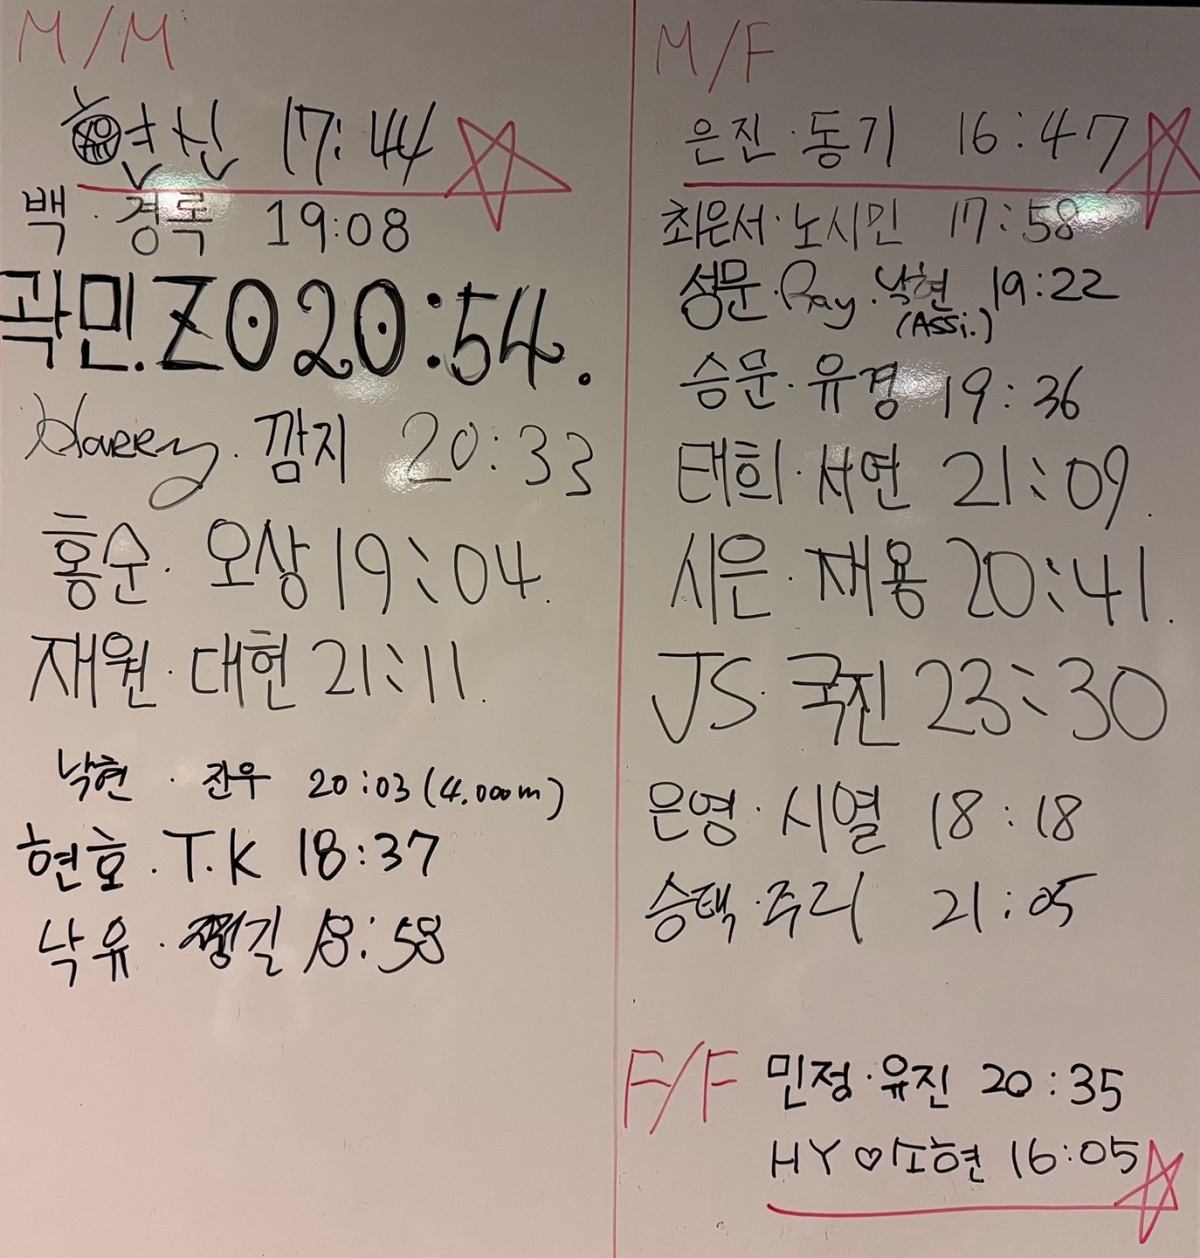 M/M
현신 17:44
백 · 경록 19:08
곽민.ZO 20:54.
Harry. 깜지 20:33
홍순. 오상 19:04.
재원. 대현 21:11.
낙현 · 찬우 20:03 (4.000m)
현호. T.K 18:37
낙유 · 길 18:58
M/F
은진·동기 16:47
최은서·노시민 17:58
성문·Ray·낙현 19:22
(Assi.)
승문·유경 19:36
태희·서연 21:09.
시은·재용 20:41.
JS· 국진 23:30
은영·시열 18:18
승택·주리 21:05
F/F
민정·유진 20:35
HY♡소현 16:05